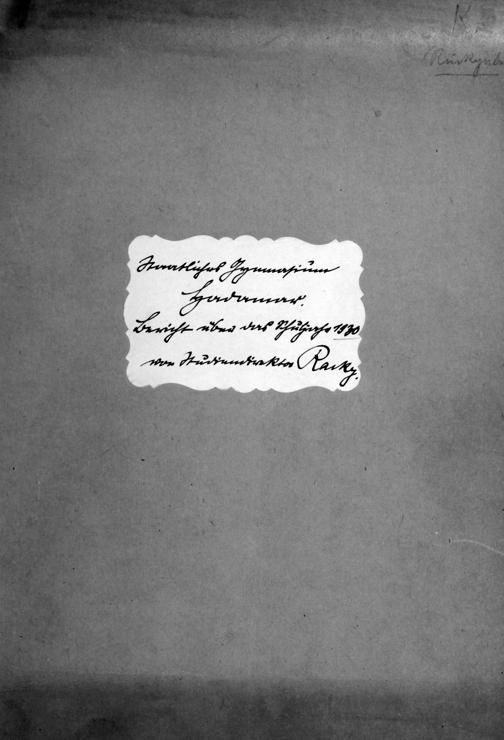 Rückgabe
Staatliches Gymnasium
Hadamar.
Bericht über das Schuljahr 1930
von Studiendirektor Racky.